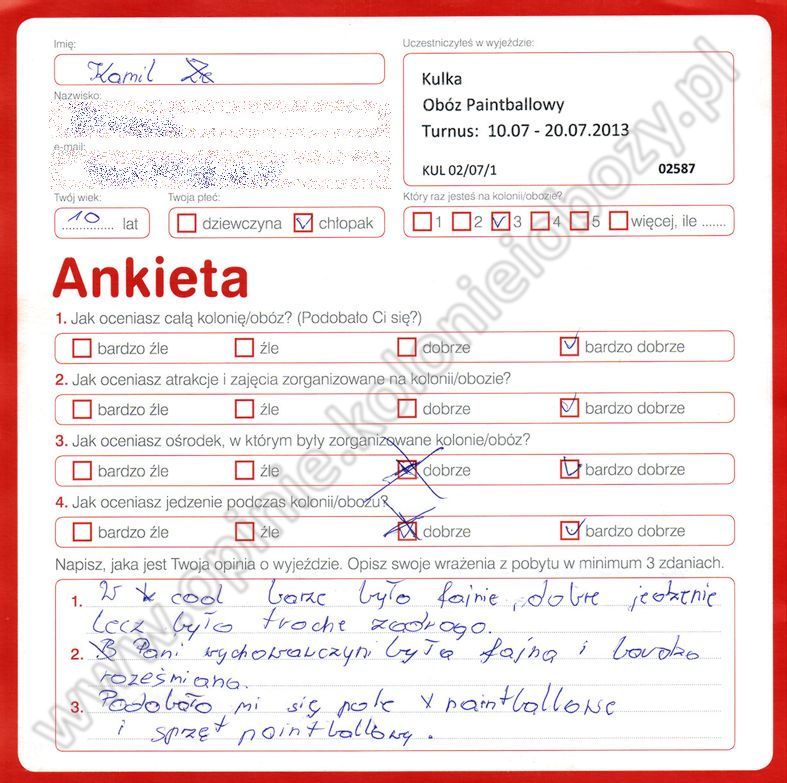 Imię:
Kamil
Nazwisko:
e-mail:
Twój wiek:
10 lat
Twoja płeć:
dziewczyna chłopak
Uczestniczyłeś w wyjeździe:
Kulka
Obóz Paintballowy
Turnus: 10.07 - 20.07.2013
KUL 02/07/1 02587
Który raz jesteś na kolonii/obozie?
1 2 3 4 5 więcej, ile .......
Ankieta
1. Jak oceniasz całą kolonię/obóz? (Podobało Ci się?)
bardzo źle źle dobrze bardzo dobrze
2. Jak oceniasz atrakcje i zajęcia zorganizowane na kolonii/obozie?
bardzo źle źle dobrze bardzo dobrze
3. Jak oceniasz ośrodek, w którym były zorganizowane kolonie/obóz?
bardzo źle źle dobrze bardzo dobrze
4. Jak oceniasz jedzenie podczas kolonii/obozu?
bardzo źle źle dobrze bardzo dobrze
Napisz, jaka jest Twoja opinia o wyjeździe. Opisz swoje wrażenia z pobytu w minimum 3 zdaniach.
1. W cool barze było fajnie, dobre jedzenie
lecz było troche zadrogo.
2. Pani wychowawczyni była fajna i bardzo
roześmiana.
3. Podobało mi się pole paintballowe
i sprzęt paintballowy.
www.opinie.kolonieiobozy.pl